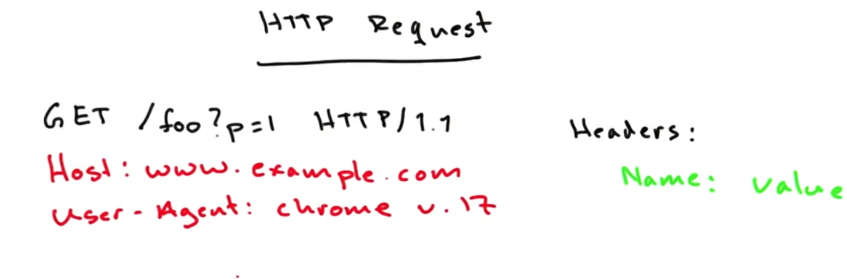 HTTP Request
GET /foo?p=1 HTTP/1.1
Host: www.example.com
User-Agent: chrome v.17
Headers:
Name: value